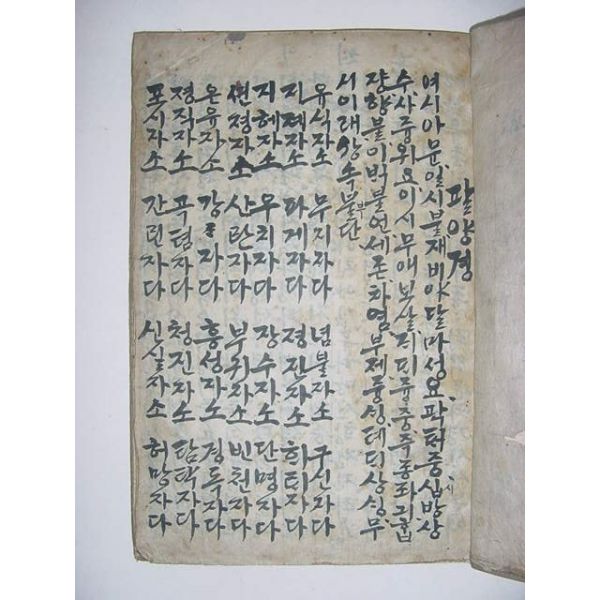 팔양경
여시아문일시불재비야달마성요확택중십방상
수사즁위요이시무애보살지띠듕중주동좌긔흡
쟝향불이백불언세존차염부제듕싱톄디상싱무
시이래상수불부단
유식자소 무지자다 념불자소 구신자다
지계자소 파게자다 졍진자소 희틔자다
지혜자소 우치자다 장수자소 단명자다
션졍자소 산란자다 부귀자소 빈천자다
온유자소 강강자다 흥성자소 경독자다
졍직자소 곡텸자다 청진자소 탐탁자다
포시자소 간린자다 신실자소 허망자다